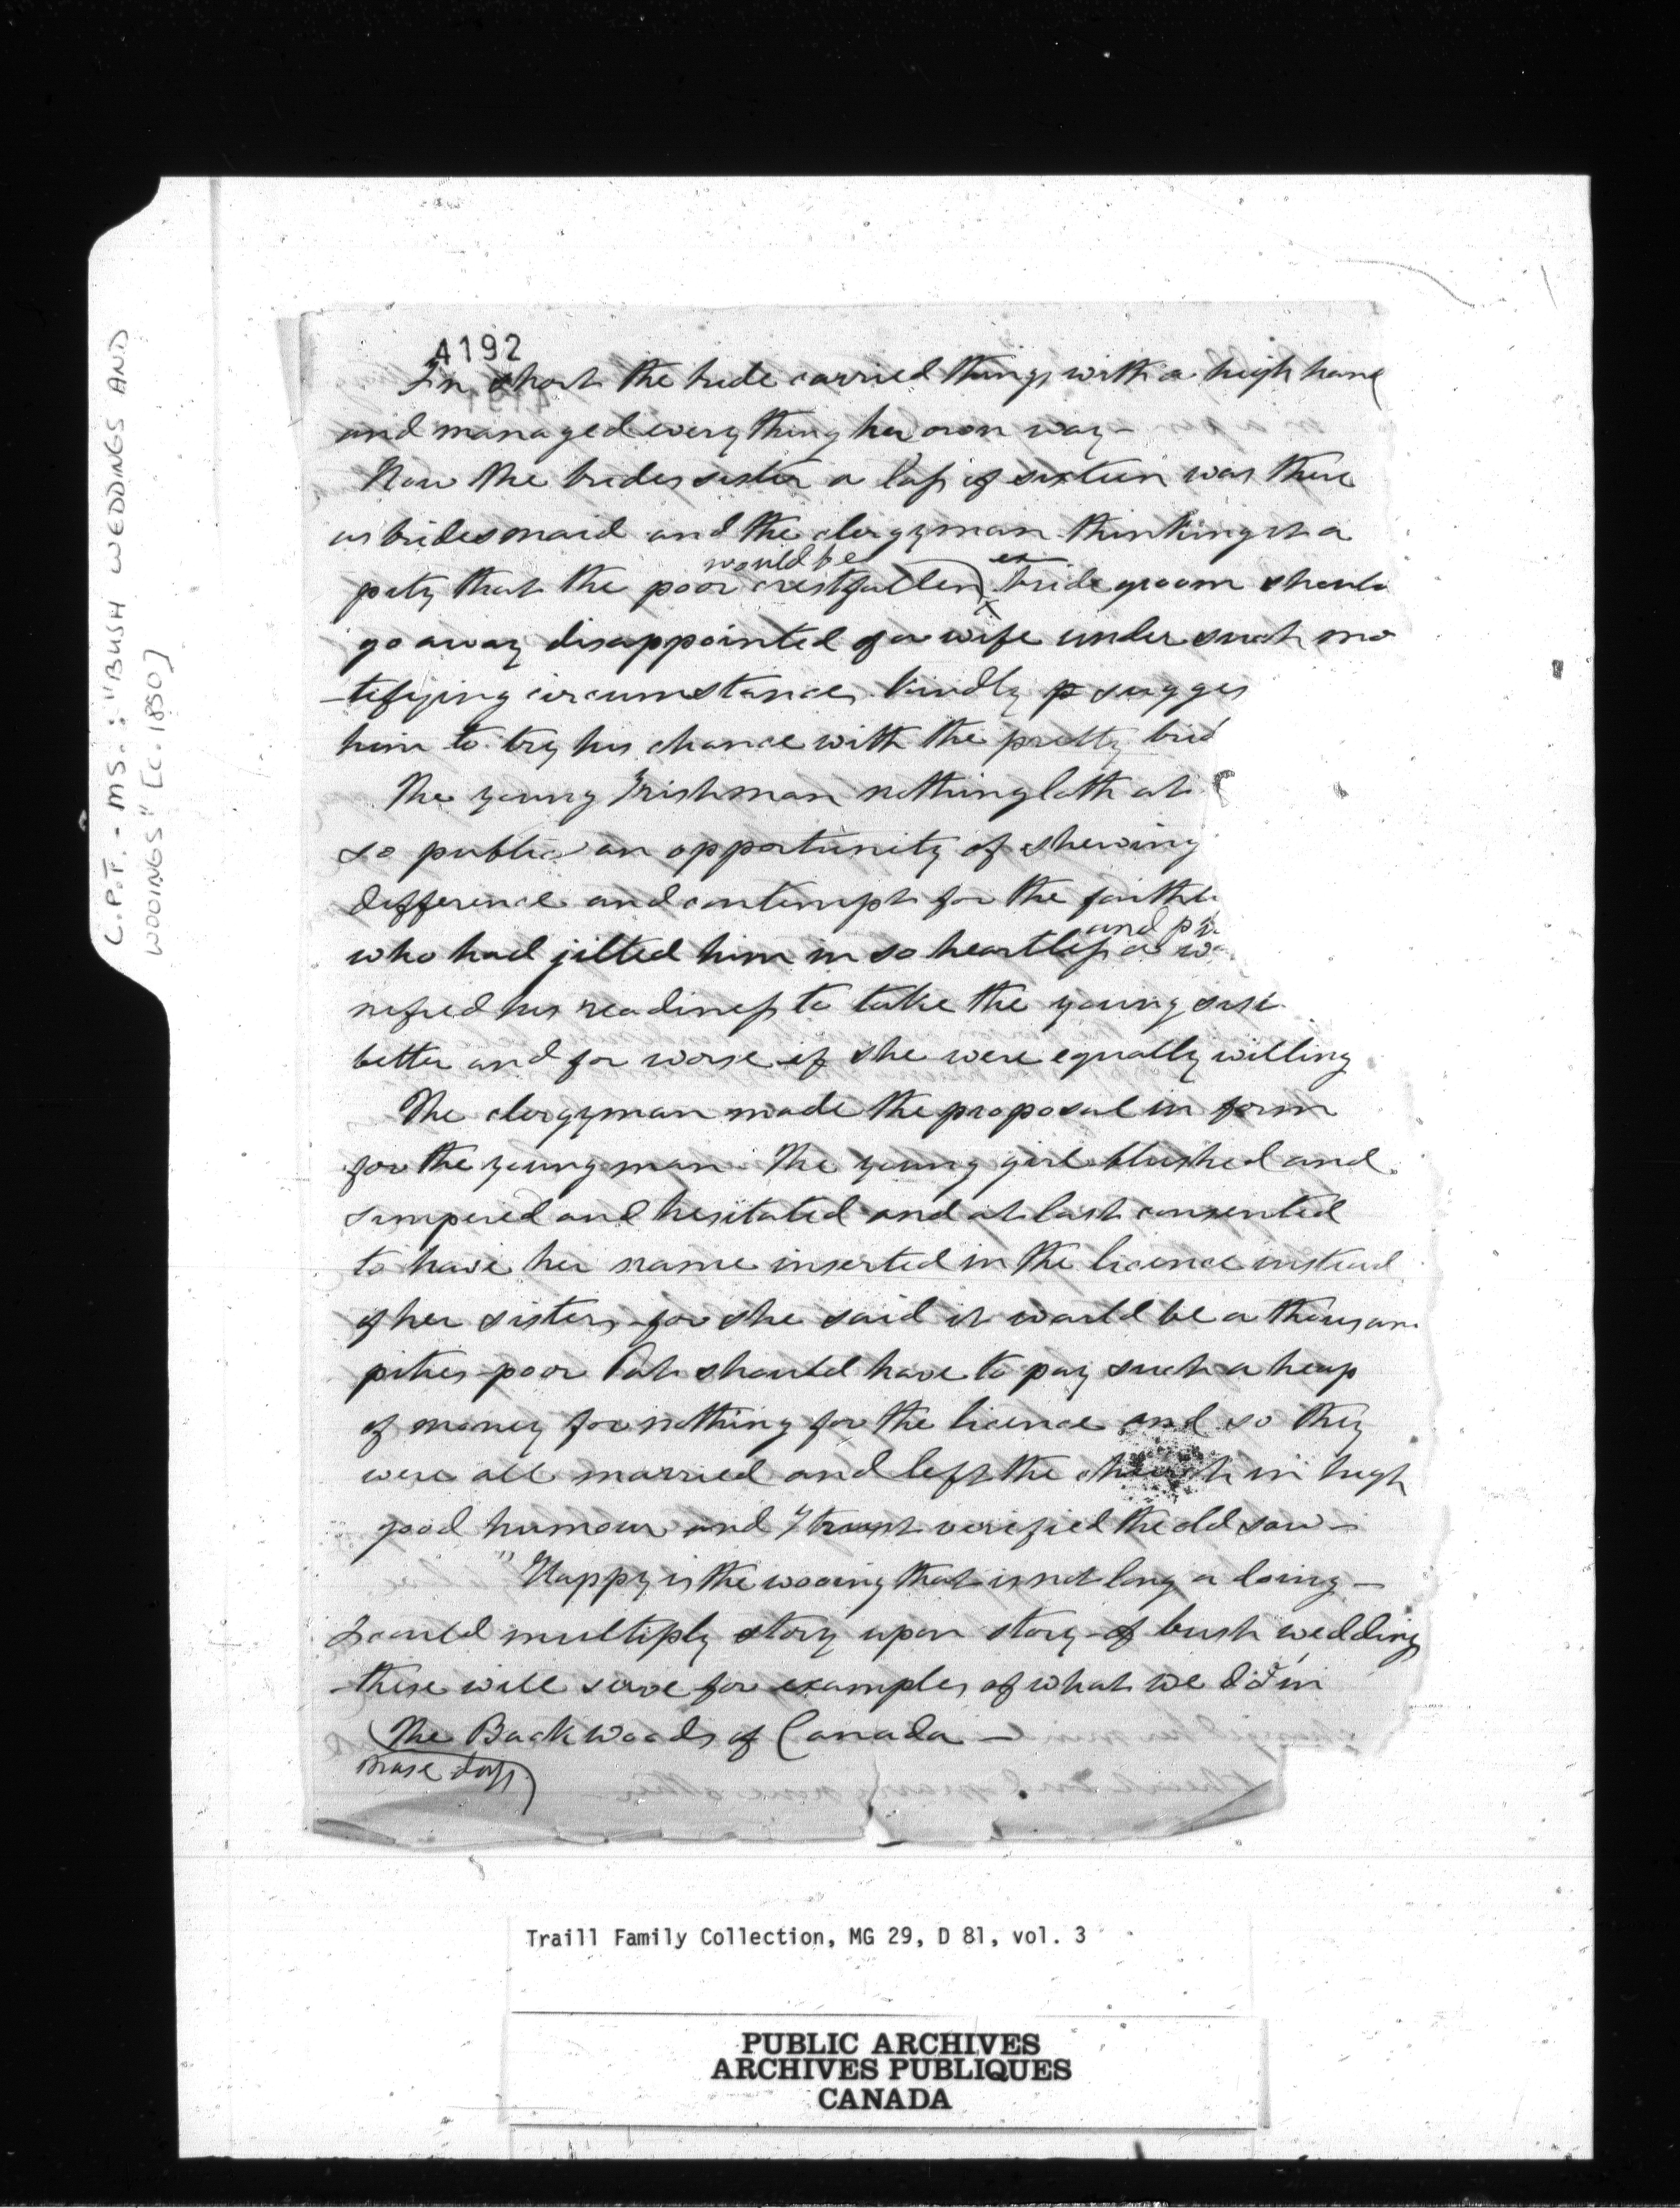 C.P.T. - MS.: "BUSH WEDDINGS AND
WOOINGS" [c. 1850]
4192
In short the bride carried things with a high hand
and managed everything her own way -
Now the brides sister a lass of sixteen was there
as bridesmaid and the clergyman thinking it a
would be
pity that the poor crestfallen bridegroom should
go away disappointed of a wife under such mo
-tifying circumstances kindly sugges
him to try his chance with the pretty brid
The young Irishman nothing loth at
so public an opportunity of shewing
difference and contempt for the faithle
and pu
who had jilted him in so heartless a wa
nified his readiness to take the young sist
better and for worse if she were equally willing
The clergyman made the proposal in form
for the young man. The young girl blushed and
simpered and hesitated and at last consented
to have her name inserted in the licence instead
of her sisters for she said it would be a thousan
pities poor Pat should have to pay such a heap
of money for nothing for the licence and so they
were all married and left the church in high
good humour and I trust verified the old saw -
"Happy is the wooing that is not long a doing -
I could multiply story upon story of bush wedding
these will serve for examples of what we did in
The Backwoods of Canada -
days
Traill Family Collection, MG 29, D 81, vol. 3
PUBLIC ARCHIVES
ARCHIVES PUBLIQUES
CANADA